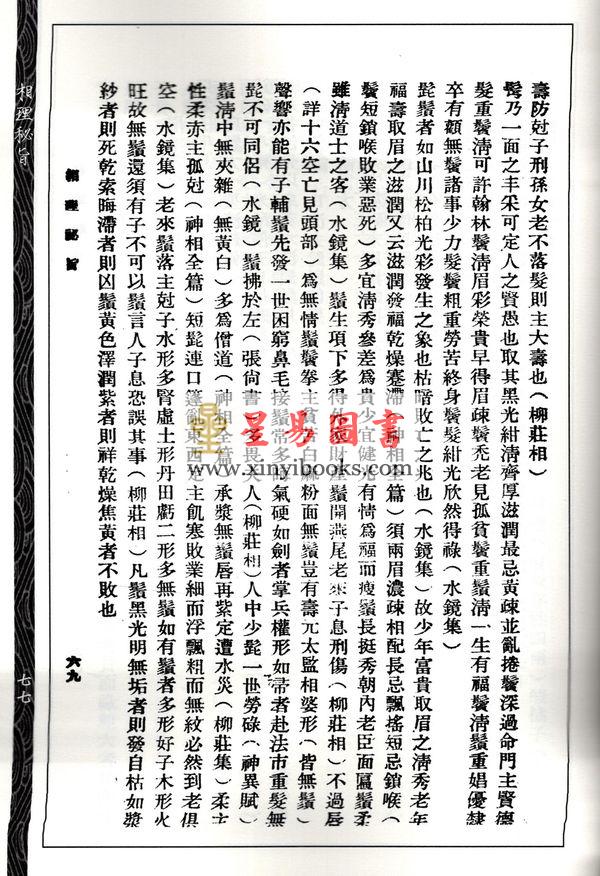 壽防尅子刑孫女老不落髮則主大壽也（柳莊相）
髩乃一面之丰采可定人之賢愚也取其黑光紺淸齊厚滋潤最忌黃疎並亂捲鬢深過命門主賢德
髮重鬢淸可許翰林鬢淸眉彩榮貴早得眉疎鬢禿老見孤貧鬢重鬚淸一生有福鬢淸鬚重娼優隸
卒有顧無鬢諸事少力髮鬢粗重勞苦終身鬢髮紺光欣然得祿（水鏡集）
髭鬚者如山川松柏光彩發生之象也枯暗敗亡之兆也（水鏡集）故少年富貴取眉之淸秀老年
福壽取眉之滋潤又云滋潤發福乾燥蹇滯（神相全篇）須兩眉濃疎相配長忌飄搖短忌鎖喉（
鬢短鎖喉敗業惡死）多宜淸秀參差爲貴少宜健光有情爲福而瘦鬚長挺秀朝內老臣面匾鬚柔
雖淸道士之客（水鏡集）鬚生項下多得外財產鬚開燕尾老來子息刑傷（柳莊相）不過唇
（詳十六空亡見頭部）爲無情鬚鬢拳主貧苦白麻粉面無鬚豈有壽元太監相婆形（皆無鬚）
聲響亦能有子輔鬚先發一世困窮鼻毛接鬚常多 氣硬如劍者掌兵權形如帚者赴法市重髮無
髭不可同侶（水鏡）鬚拂於左（張尙書）多畏夫人（柳莊相）人中少髭一世勞碌（神異賦）
鬚淸中無夾雜（無黃白）多爲僧道（神相全篇）承漿無鬚唇再紫定遭水災（柳莊集）柔主
性柔亦主孤尅（神相全篇）短髭連口蓬鬆東西定主飢寒敗業細而浮飄粗而無紋必然到老俱
空（水鏡集）老來鬚落主尅子水形多腎虛土形丹田虧二形多無鬚如有鬚者多形好子木形火
旺故無鬚還須有子不可以鬚言人子息恐誤其事（柳莊相）凡鬚黑光明無垢者則發自枯如漿
紗者則死乾索晦滯者則凶鬚黃色澤潤紫者則祥乾燥焦黃者不敗也
相理秘旨
六九
相理秘旨
七七
星易圖書
www.xinyibooks.com